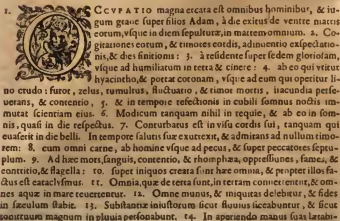 1. OCCVPATIO magna creata est omnibus hominibus, & iu-
gum graue super filios Adam, à die exitus de ventre matris
eorum, vsque in diem sepulturæ, in matrem omnium. 2. Co-
gitationes eorum, & timores cordis, adinuentio expectatio-
nis, & dies finitionis: 3. à residente super sedem gloriosam,
vsque ad humiliatum in terra & cinere: 4. ab eo qui vtitur
hyacintho, & portat coronam, vsque ad eum qui operitur li-
no crudo: furor, zelus, tumultus, fluctuatio, & timor mortis, iracundia perse-
uerans, & contentio, 5. & in tempore refectionis in cubili somnus noctis im-
mutat scientiam eius. 6. Modicum tanquam nihil in requie, & ab eo in som-
nis, quasi in die respectus. 7. Conturbatus est in visu cordis sui, tanquam qui
euaserit in die belli. In tempore salutis suæ exurrexit, & admirans ad nullum timo-
rem: 8. cum omni carne, ab homine vsque ad pecus, & super peccatores septu-
plum. 9. Ad hæc mors, sanguis, contentio, & rhomphæa, oppressiones, fames, &
contritio, & flagella: 10. super iniquos creata sunt hæc omnia, & propter illos fa-
ctus est cataclysmus. 11. Omnia, quæ de terra sunt, in terram conuertentur, & om-
nes aquæ in mare reuertentur. 12. Omne munus, & iniquitas delebitur, & fides
in sæculum stabit. 13. Substantiæ iniustorum sicut fluuius siccabuntur, & sicut
tonitruum magnum in pluuia personabunt. 14. In aperiendo manus suas lætabi-